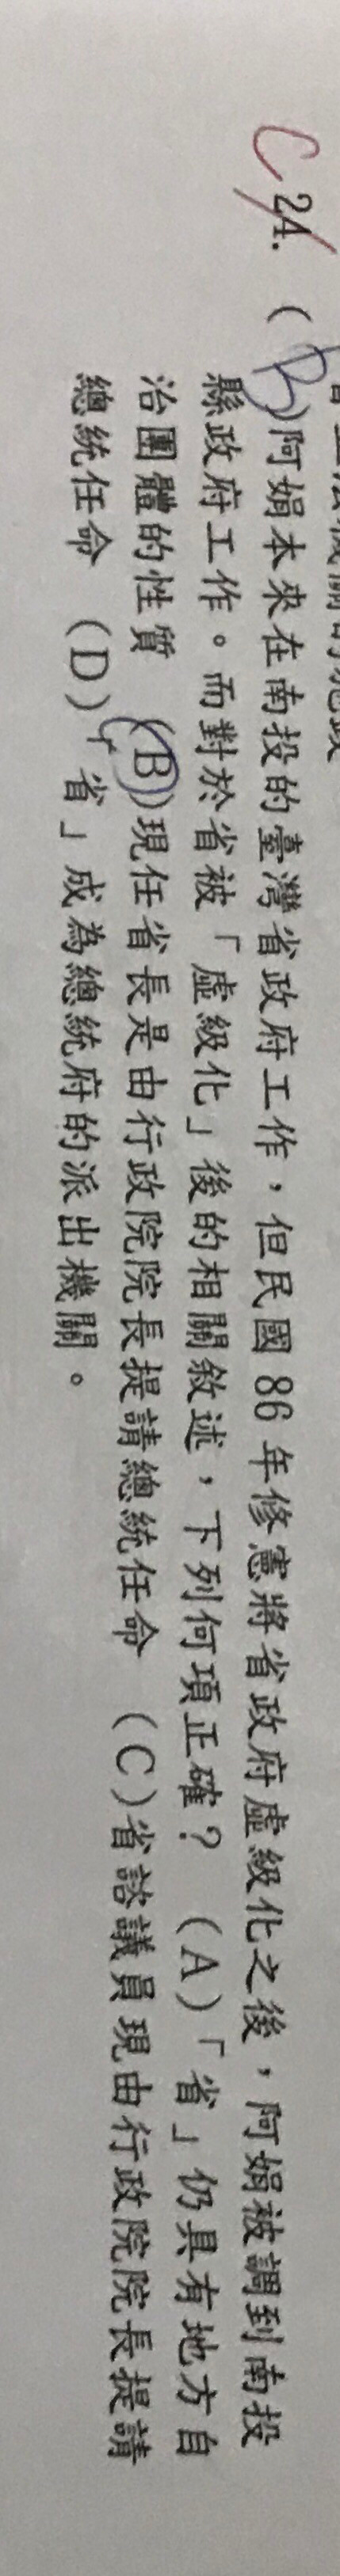 C 24. (B)阿娟本來在南投的臺灣省政府工作，但民國 86 年修憲將省政府虛級化之後，阿娟被調到南投
縣政府工作。而對於省被「虛級化」後的相關敘述，下列何項正確？ (A)「省」仍具有地方自
治團體的性質 (B)現任省長是由行政院院長提請總統任命 (C)省諮議員現由行政院院長提請
總統任命 (D)「省」成為總統府的派出機關。